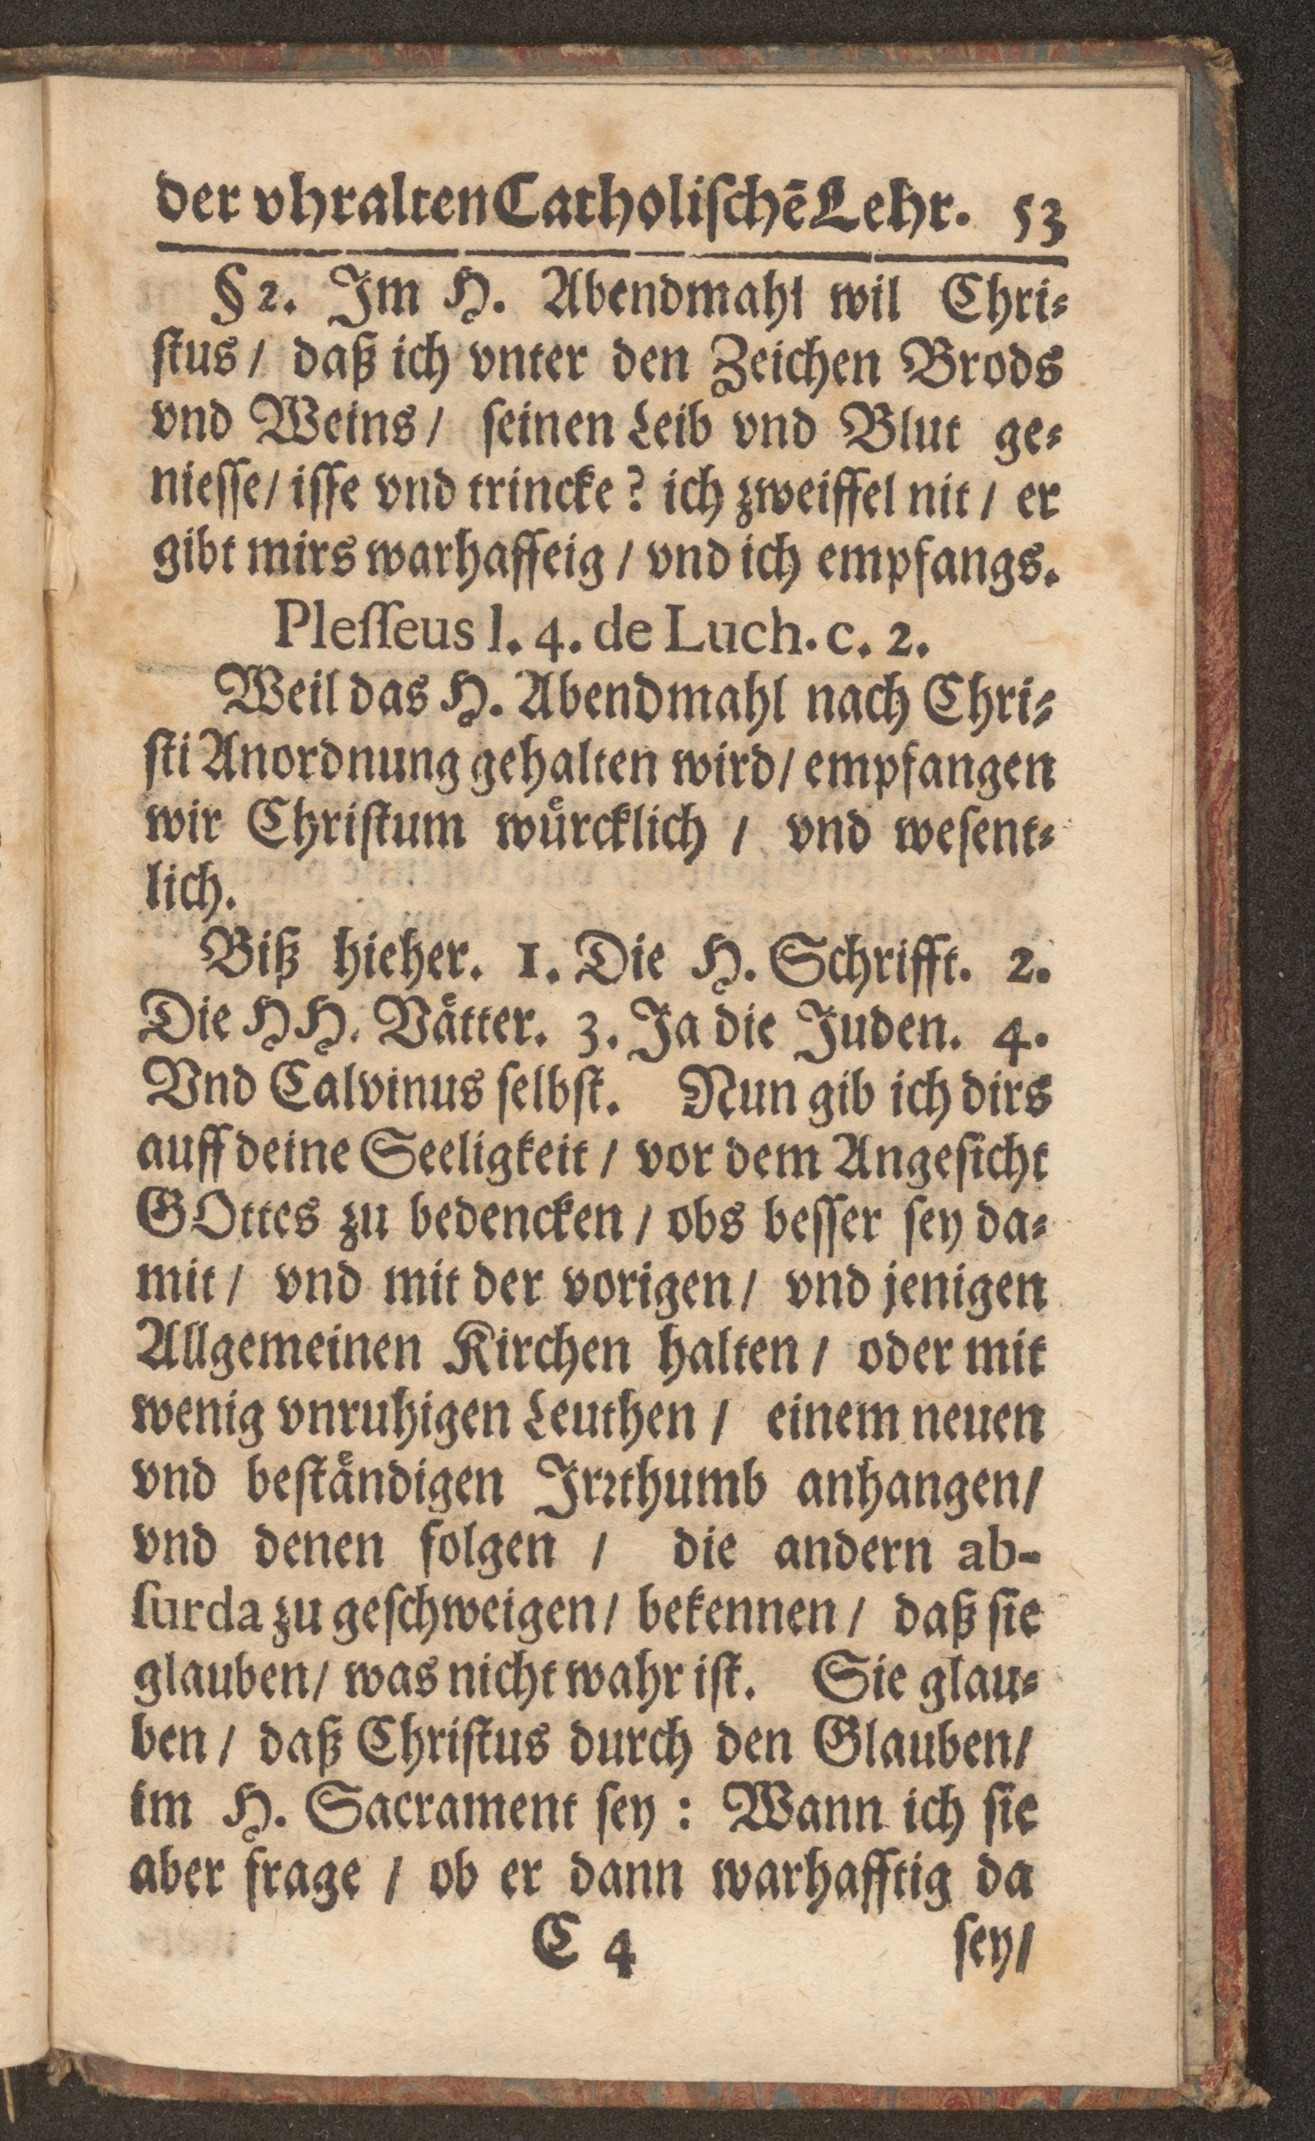 der vhralten Catholischē Lehr. 53
§ 2. Im H. Abendmahl wil Chri⸗
stus / daß ich vnter den Zeichen Brods
vnd Weins / seinen Leib vnd Blut ge⸗
niesse / isse vnd trincke? ich zweiffel nit / er
gibt mirs warhaffeig / vnd ich empfangs.
Plesseus l. 4. de Luch. c. 2.
Weil das H. Abendmahl nach Chri⸗
sti Anordnung gehalten wird / empfangen
wir Christum wuͤrcklich / vnd wesent⸗
lich.
Biß hieher. 1. Die H. Schrifft. 2.
Die HH. Vaͤtter. 3. Ja die Juden. 4.
Vnd Calvinus selbst. Nun gib ich dirs
auff deine Seeligkeit / vor dem Angesicht
GOttes zu bedencken / obs besser sey da⸗
mit / vnd mit der vorigen / vnd jenigen
Allgemeinen Kirchen halten / oder mit
wenig vnruhigen Leuthen / einem neuen
vnd bestaͤndigen Irꝛthumb anhangen /
vnd denen folgen / die andern ab-
surda zu geschweigen / bekennen / daß sie
glauben / was nicht wahr ist. Sie glau⸗
ben / daß Christus durch den Glauben /
im H. Sacrament sey : Wann ich sie
aber frage / ob er dann warhafftig da
C 4 sey /